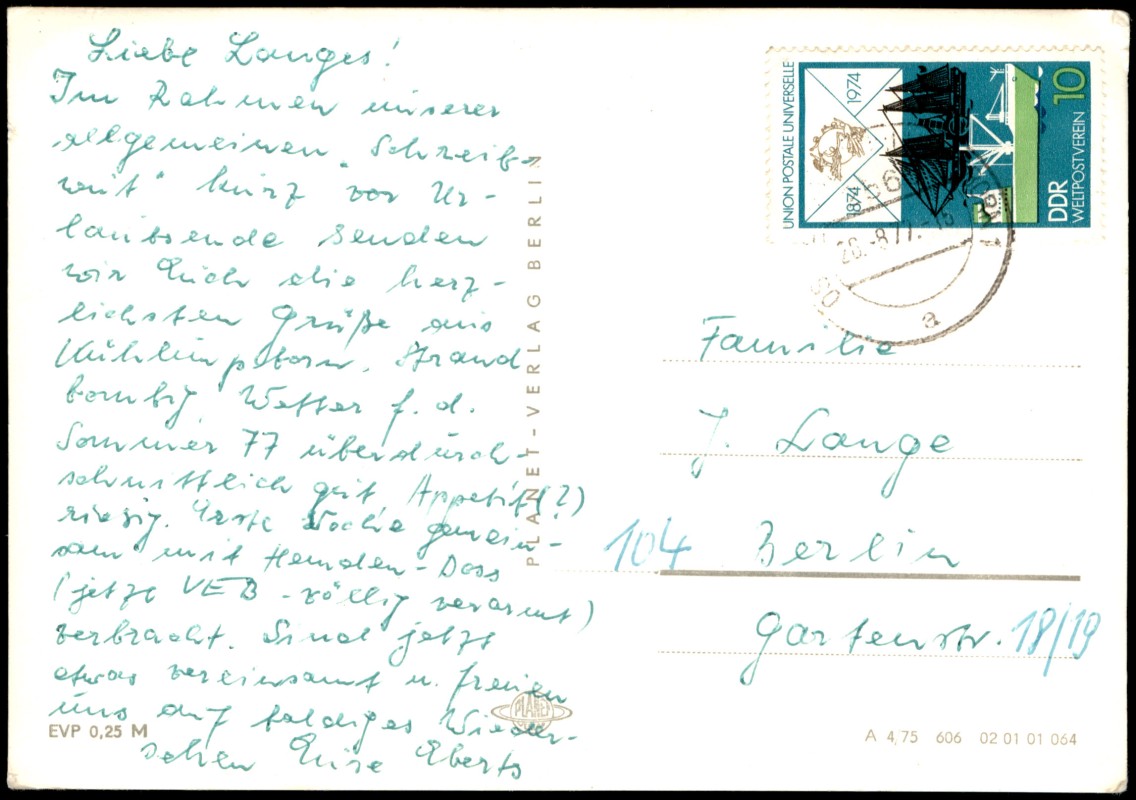 Liebe Langes!
Im Rahmen unserer
allgemeinen "Schreib-
wut" kurz vor Ur-
laubsende senden
wir Euch die herz-
lichsten Grüße aus
Kühlungsborn. Strand
bombig, Wetter f. d.
Sommer 77 überdurch-
schnittlich gut, Appetit (?)
riesig. Erste Woche gemein-
sam mit Hemden-Doss
(jetzt VEB - völlig verarmt)
verbracht. Sind jetzt
etwas vereinsamt u. freuen
uns auf baldiges Wieder-
sehen Eure Eberts
EVP 0,25 M
PLANET-VERLAG BERLIN
PLANET
UNION POSTALE UNIVERSELLE
1874 1974
DDR 10
WELTPOSTVEREIN
26.-8.77.
a
Familie
J. Lange
104 Berlin
Gartenstr. 18/19
A 4,75 606 02 01 01 064